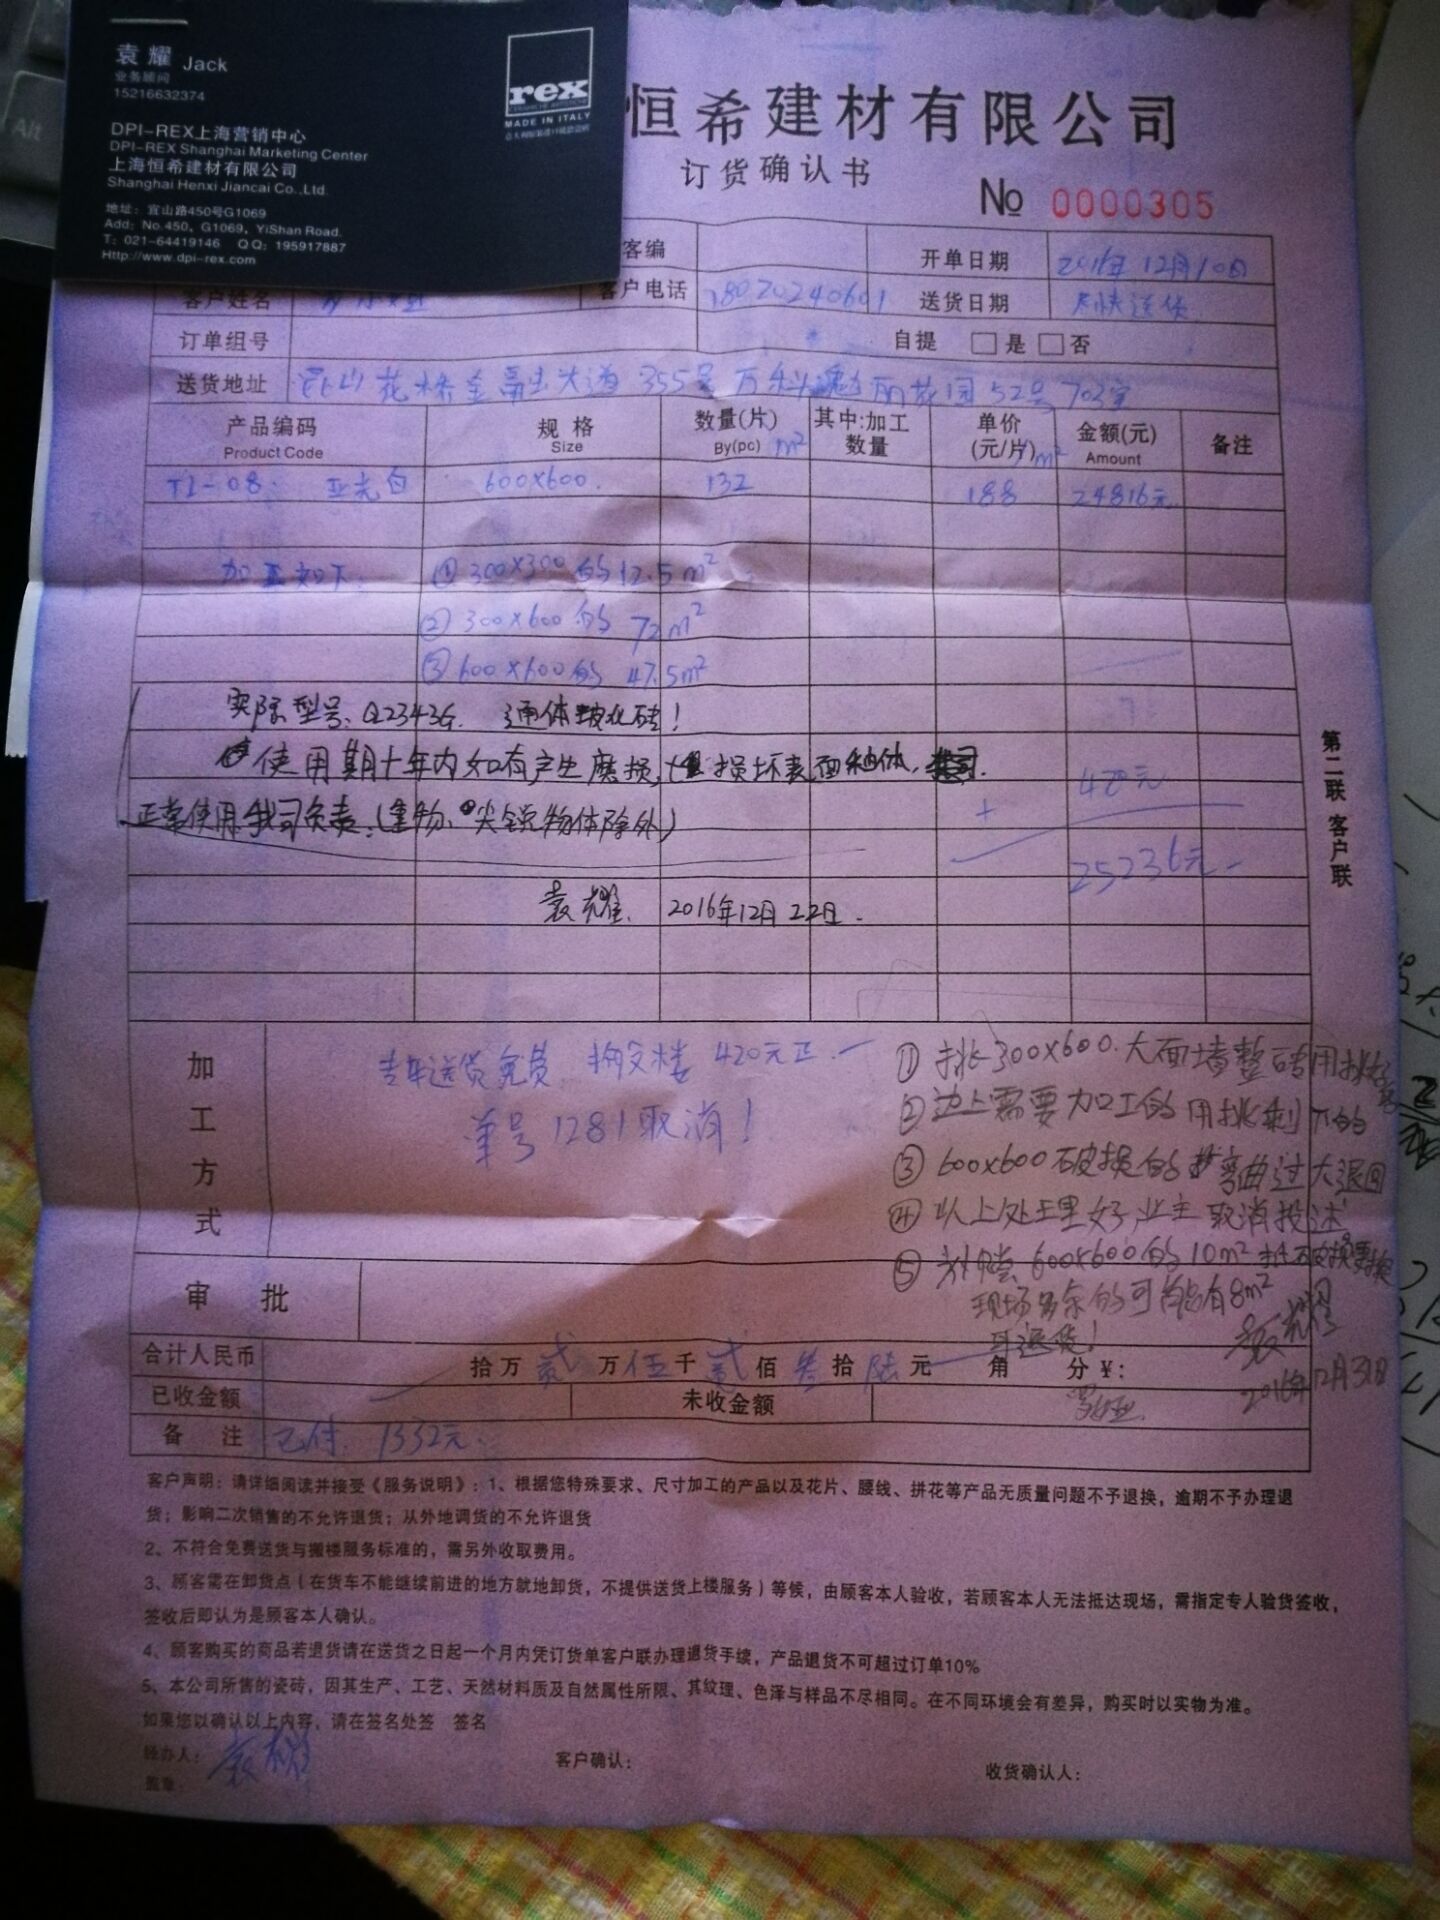 袁耀 Jack
业务顾问
15216632374
rex
MADE IN ITALY
DPI-REX上海营销中心
DPI-REX Shanghai Marketing Center
上海恒希建材有限公司
Shanghai Henxi Jiancai Co.,Ltd.
地址：宜山路450号G1069
Add: No.450, G1069, YiShan Road.
T: 021-64419146 QQ: 195917887
Http://www.dpi-rex.com
Alt
恒希建材有限公司
订货确认书
№ 0000305
客编 开单日期 2016年12月10日
客户姓名 客户电话 18020240601 送货日期 尽快送货
订单组号 自提 □是 □否
送货地址 昆山花桥金融大道355号万科魅力花园52号703室
产品编码 规格 数量(片) 其中:加工数量 单价(元/片) m² 金额(元) 备注
Product Code Size By(pc) m² Amount
T1-08. 亚光白 600X600. 132 188 24816元
加工如下: ①300X300的12.5m²
②300X600的 72m²
③600X600的 47.5m²
实际型号:Q2343G. 通体玻化砖!
使用期十年内如有产生磨损,损坏表面釉体,
420元
正常使用我司负责.(重物、尖锐物体除外)
+
25236元
袁耀. 2016年12月22日.
第二联 客户联
加工方式
专车送货免费 搬上楼 420元正.
单号1281取消!
①挑300X600.大面墙整砖用挑好
②边上需要加工的用挑剩下的
③600X600破损的 弯曲过大退回
④以上处理好,业主取消投诉
⑤补偿600X600的10m²
现场多余的可 有8m²
可退货!
袁耀
2016年12月31日
审批
合计人民币 拾万 贰万 伍千 贰佰 叁拾 陆元 角 分¥:
已收金额 未收金额
备注 已付 1332元.
客户声明：请详细阅读并接受《服务说明》：1、根据您特殊要求、尺寸加工的产品以及花片、腰线、拼花等产品无质量问题不予退换，逾期不予办理退
货；影响二次销售的不允许退货；从外地调货的不允许退货
2、不符合免费送货与搬楼服务标准的，需另外收取费用。
3、顾客需在卸货点（在货车不能继续前进的地方就地卸货，不提供送货上楼服务）等候，由顾客本人验收，若顾客本人无法抵达现场，需指定专人验货签收，
签收后即认为是顾客本人确认。
4、顾客购买的商品若退货请在送货之日起一个月内凭订货单客户联办理退货手续，产品退货不可超过订单10%
5、本公司所售的瓷砖，因其生产、工艺、天然材料质及自然属性所限、其纹理、色泽与样品不尽相同。在不同环境会有差异，购买时以实物为准。
如果您以确认以上内容，请在签名处签 签名
经办人：袁耀 客户确认： 收货确认人：
盖章：